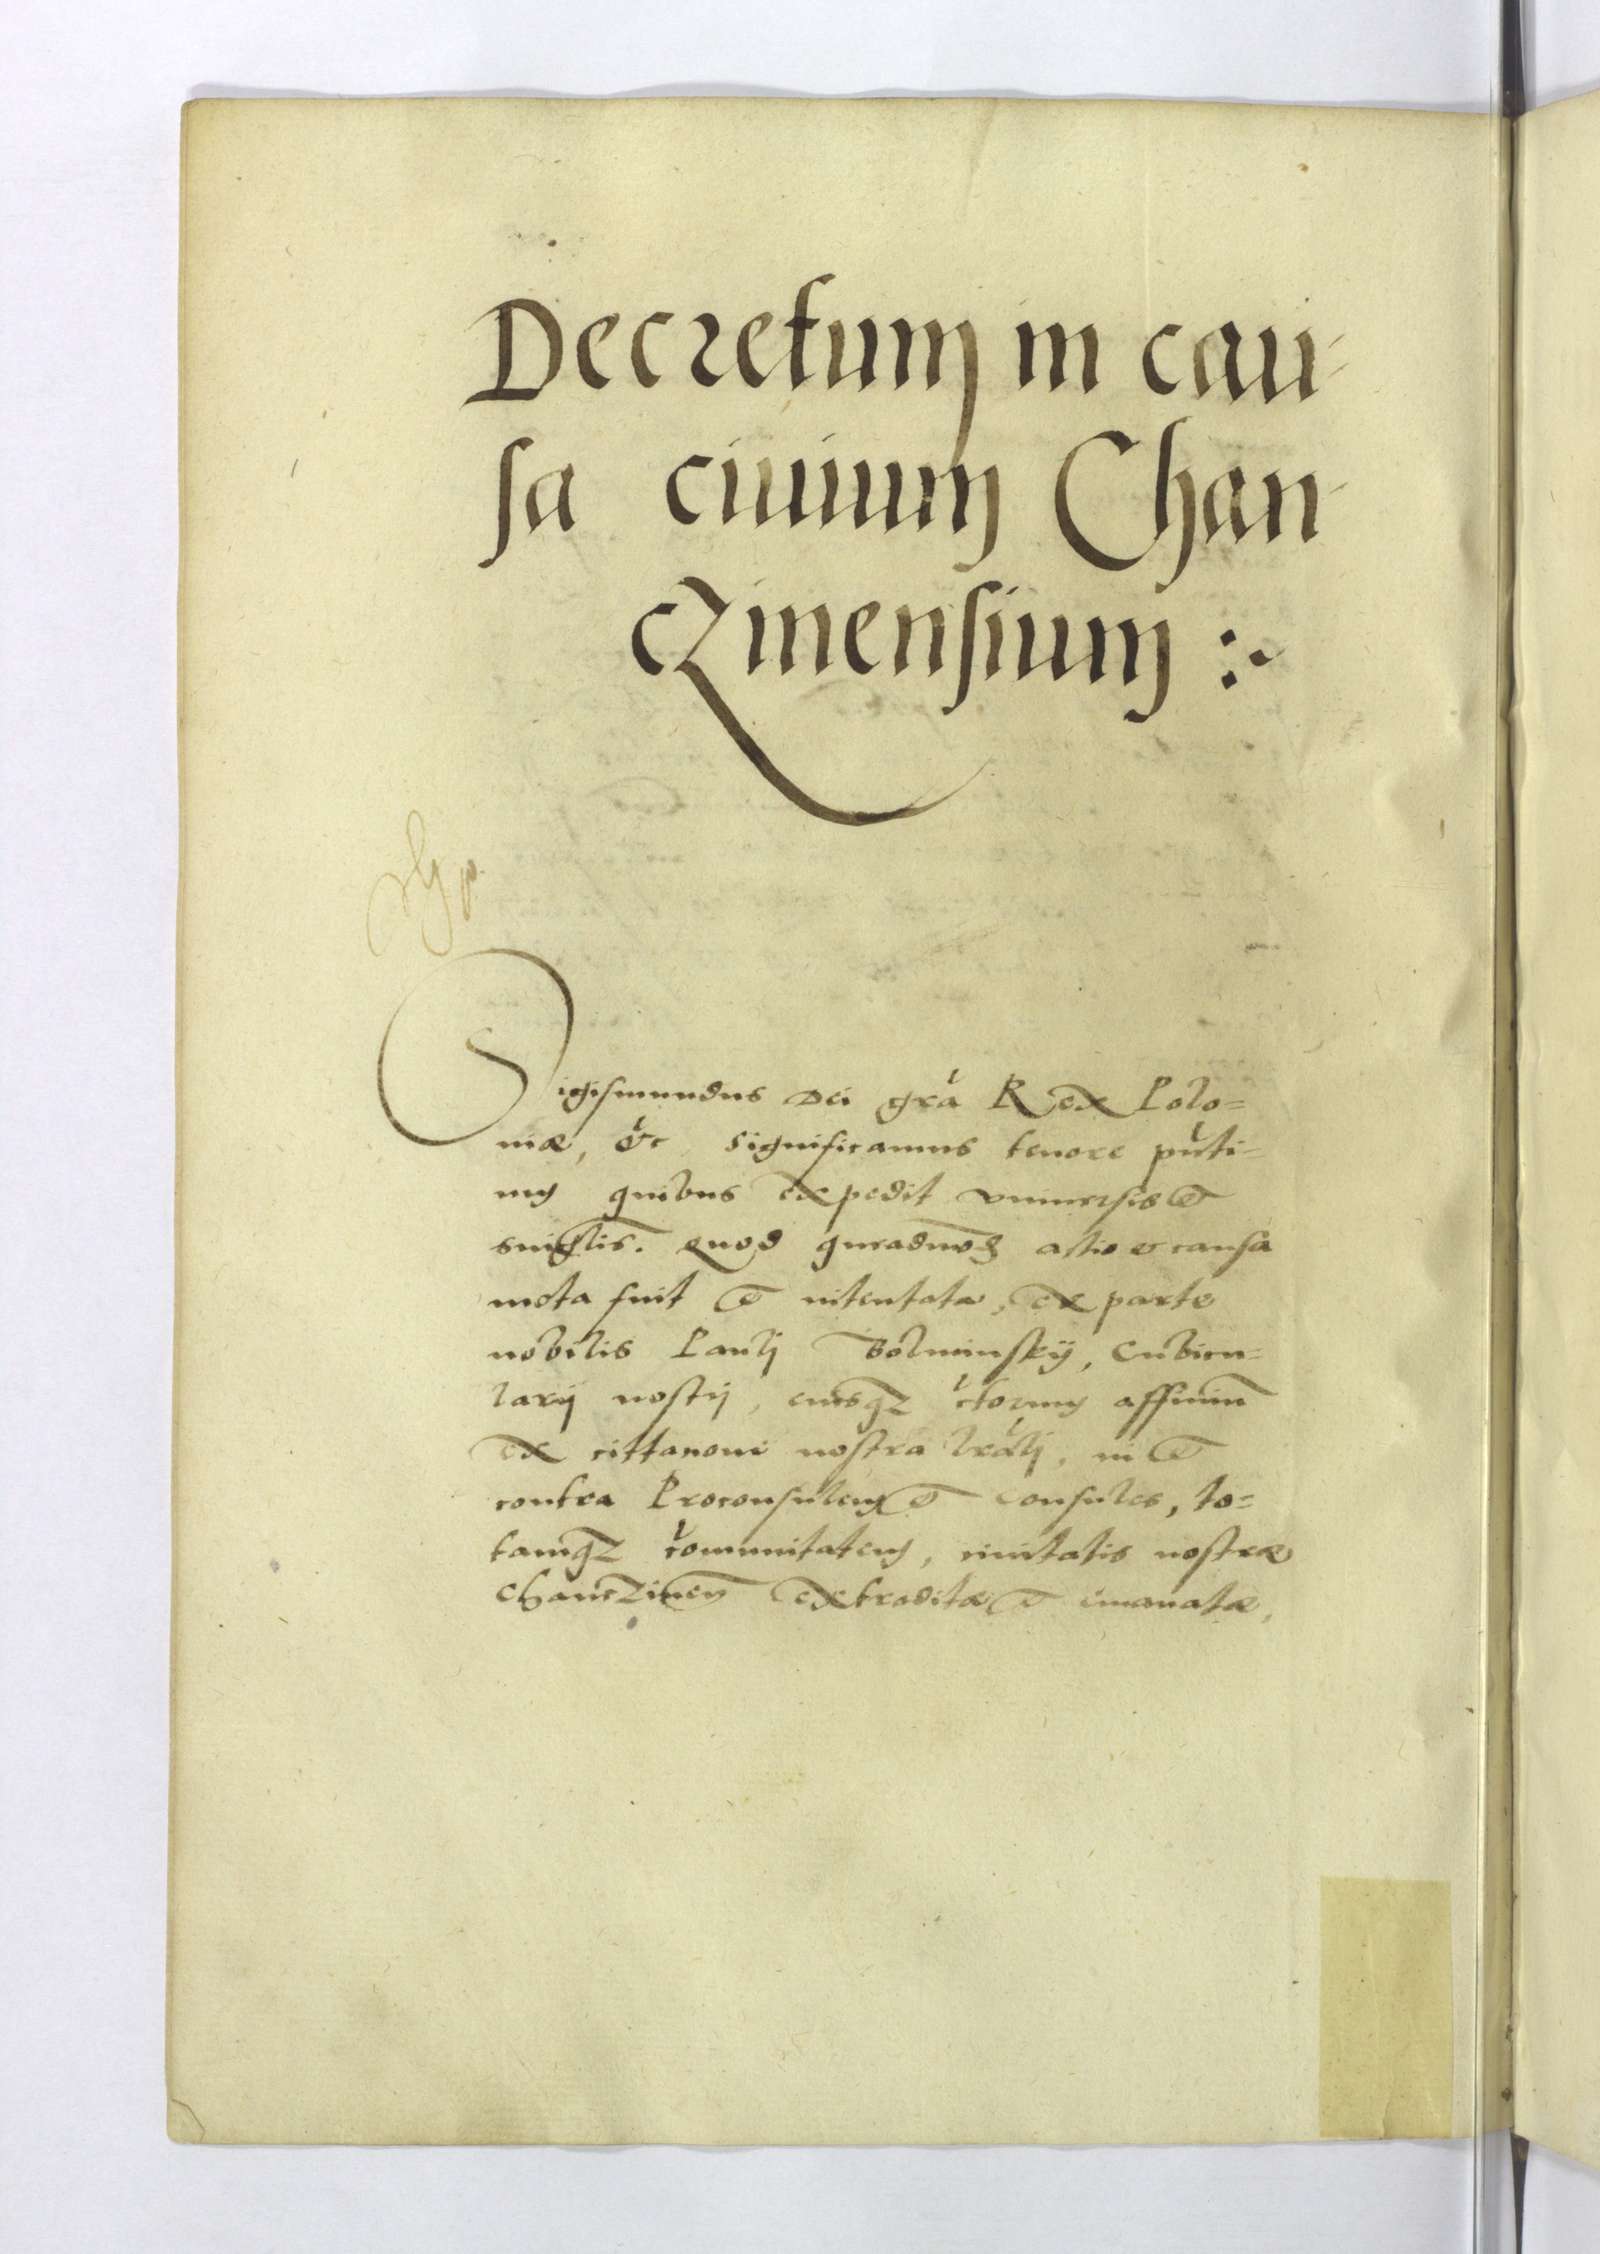 Decretum in cau-
sa ciuium Chan-
czinensium :~
Sigismundus Dei gra Rex Polo=
niæ, &c. Significamus tenore pnti=
um quibus expedit vniuersis et
singlis. Quod quemadmod actio et causa
mota fuit et intentata, ex parte
nobilis Pauli Bolminskij, Cubicu=
larij nostrj, eiusqz ctorum affinium
ex citatione nostra lrali, in et
contra Proconsulem et Consules, to=
tamqz comunitatem, ciuitatis nostræ
Chanczinen extraditæ et emanatæ,